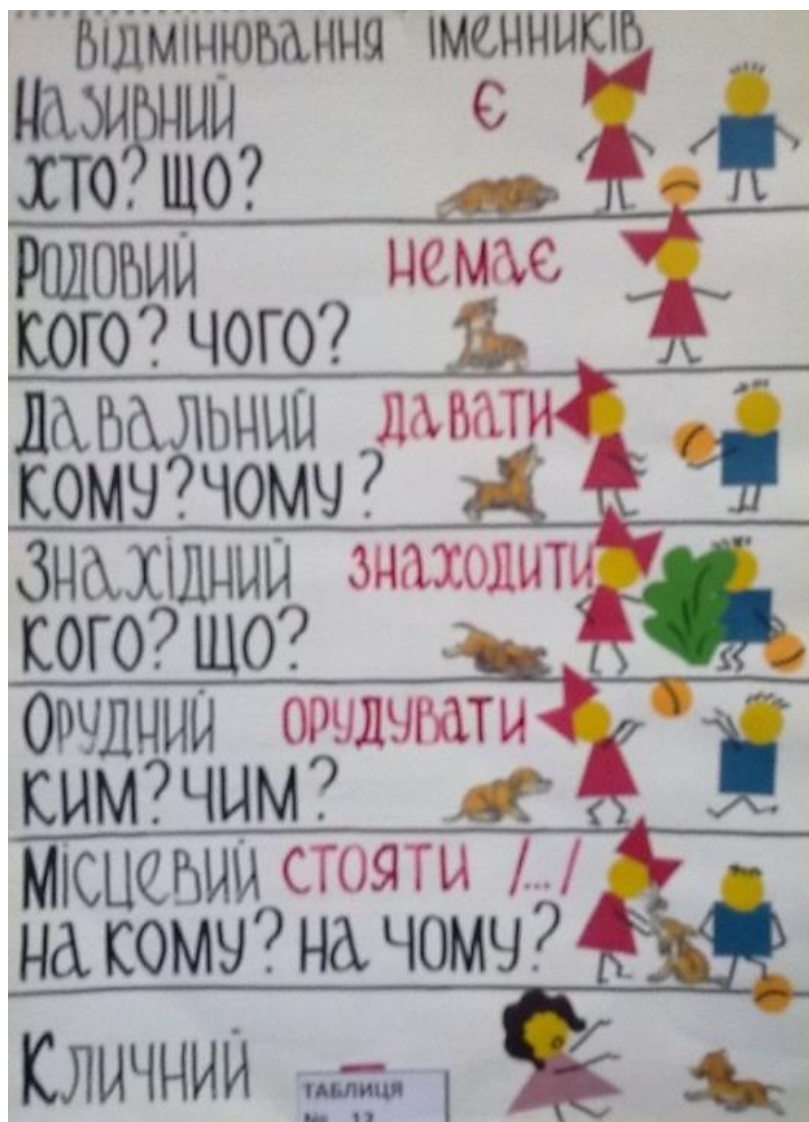 Відмінювання іменників
Називний є
хто? що?
Родовий немає
кого? чого?
Давальний давати
кому? чому?
Знахідний знаходити
кого? що?
Орудний орудувати
ким? чим?
Місцевий стояти /.../
на кому? на чому?
Кличний
ТАБЛИЦЯ
№ 12